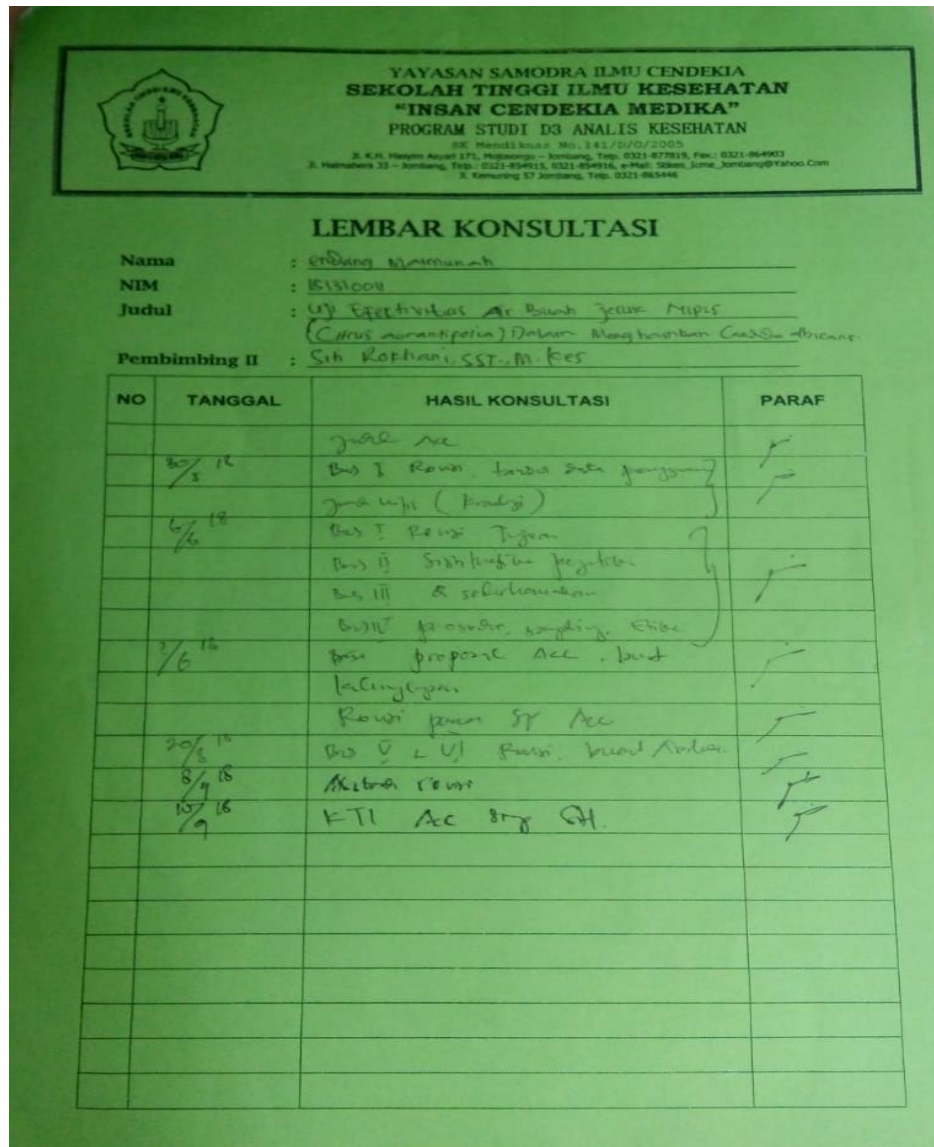 YAYASAN SAMODRA ILMU CENDEKIA
SEKOLAH TINGGI ILMU KESEHATAN
"INSAN CENDEKIA MEDIKA"
PROGRAM STUDI D3 ANALIS KESEHATAN
SK Mendiknas No.141/D/O/2005
Jl. K.H. Hasyim Asyari 171, Mojosongo – Jombang, Telp. 0321-877819, Fax.: 0321-864903
Jl. Halmahera 33 – Jombang, Telp.: 0321-854915, 0321-854916, e-Mail: Stikes_Icme_Jombang@Yahoo.Com
Jl. Kemuning 57 Jombang, Telp. 0321-865446
LEMBAR KONSULTASI
Nama : Endang Maimunah
NIM :
Judul : Uji Efektivitas Air Buah Jeruk Nipis
(Citrus aurantifolia) Dalam Menghambat Candida albicans.
Pembimbing II : Siti Rokhani, SST., M.Kes
NO TANGGAL HASIL KONSULTASI PARAF
Judul Acc
30/5 18 Bab I Revisi, data
6/6 18 Bab I Revisi Tujuan
Bab II
Bab III &
Bab IV prosedur, sampling, Etika
7/6 18 proposal Acc, buat
Revisi Acc
20/8 18 Bab V & VI Revisi, buat Abstrak.
8/9 18 Abstrak revisi
10/9 18 KTI Acc